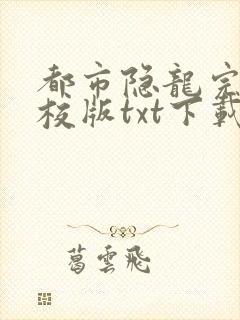 都市隐龍完
校版txt下載
葛雲飛